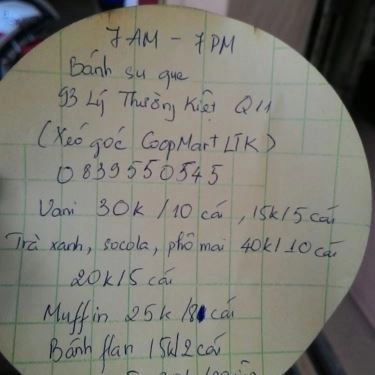 7 AM - 7 PM
Bánh su que
93 Lý Thường Kiệt Q11
(Xéo góc CoopMart LTK)
0839550545
Vani 30k/10 cái, 15k/5 cái
Trà xanh, socola, phô mai 40k/10 cái
20k/5 cái
Muffin 25k/8 cái
Bánh flan 15k/2 cái